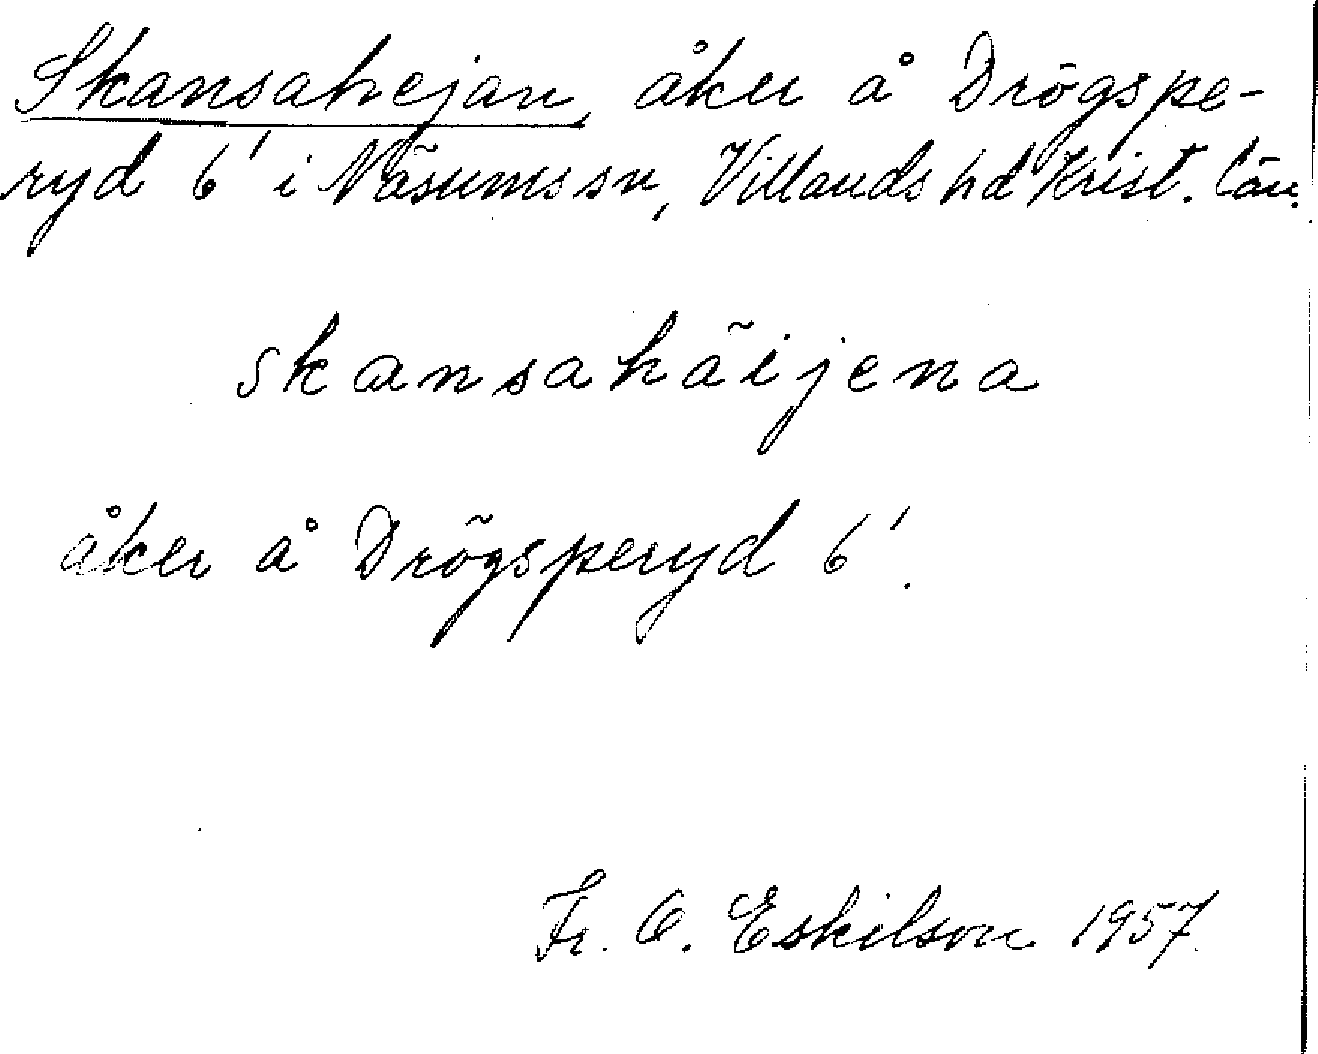 Skansahejan, åker å Drögspe-
ryd 6' i Näsums sn, Villands hd Krist. län.
skansahäijena
åker å Drögsperyd 6'.
Fr. O. Eskilson 1957.